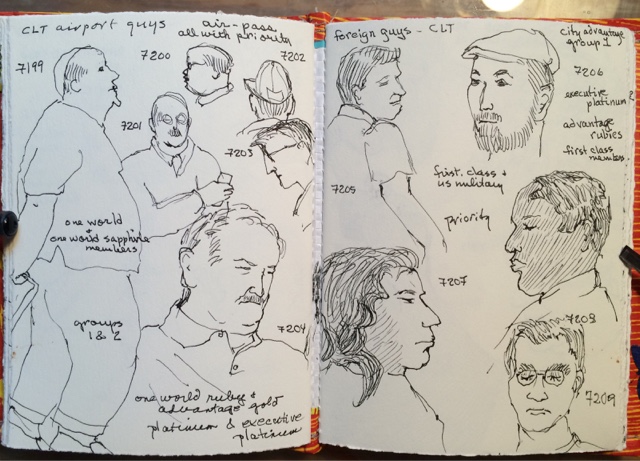 CLT airport guys
air-pass
all with priority
7199
7200
7202
7201
7203
one world
+
one world sapphire
members
groups
1 & 2
7204
one world ruby +
advantage gold
platinum & executive
platinum
foreign guys - CLT
City advantage
group 1
7206
executive
platinum?
advantage
rubies
first class
members
7205
first class +
us military
priority
7207
7208
7209